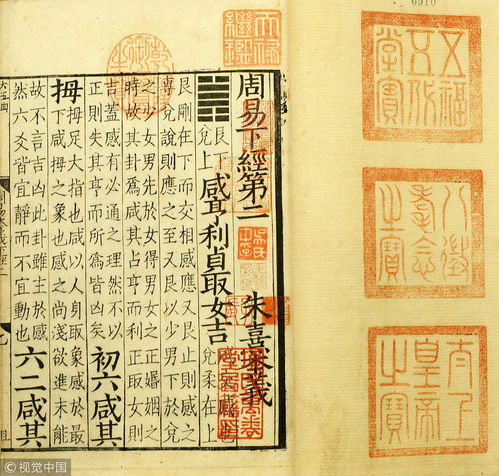 0910
五福
五代
堂寶
八徵
耄念
之寶
太上
皇帝
之寶
天祿
繼鑑
周易下經第二
朱熹本義
艮下
兌上
咸亨利貞取女吉
兌柔在上
艮剛在下而交相感應又艮止則感之
專兌說則應之至又艮以少男下於兌
之少女男先於女得男女之正婚姻之
時故其卦爲咸其占亨而利正取女則
吉蓋感有必通之理然不以
正則失其亨而所爲皆凶矣
初六咸其
拇
拇足大指也咸以人身取象感於最
下咸拇之象也感之尚淺欲進未能
故不言吉凶此卦雖主於感
然六爻皆宜靜而不宜動也
六二咸其
視覺中国